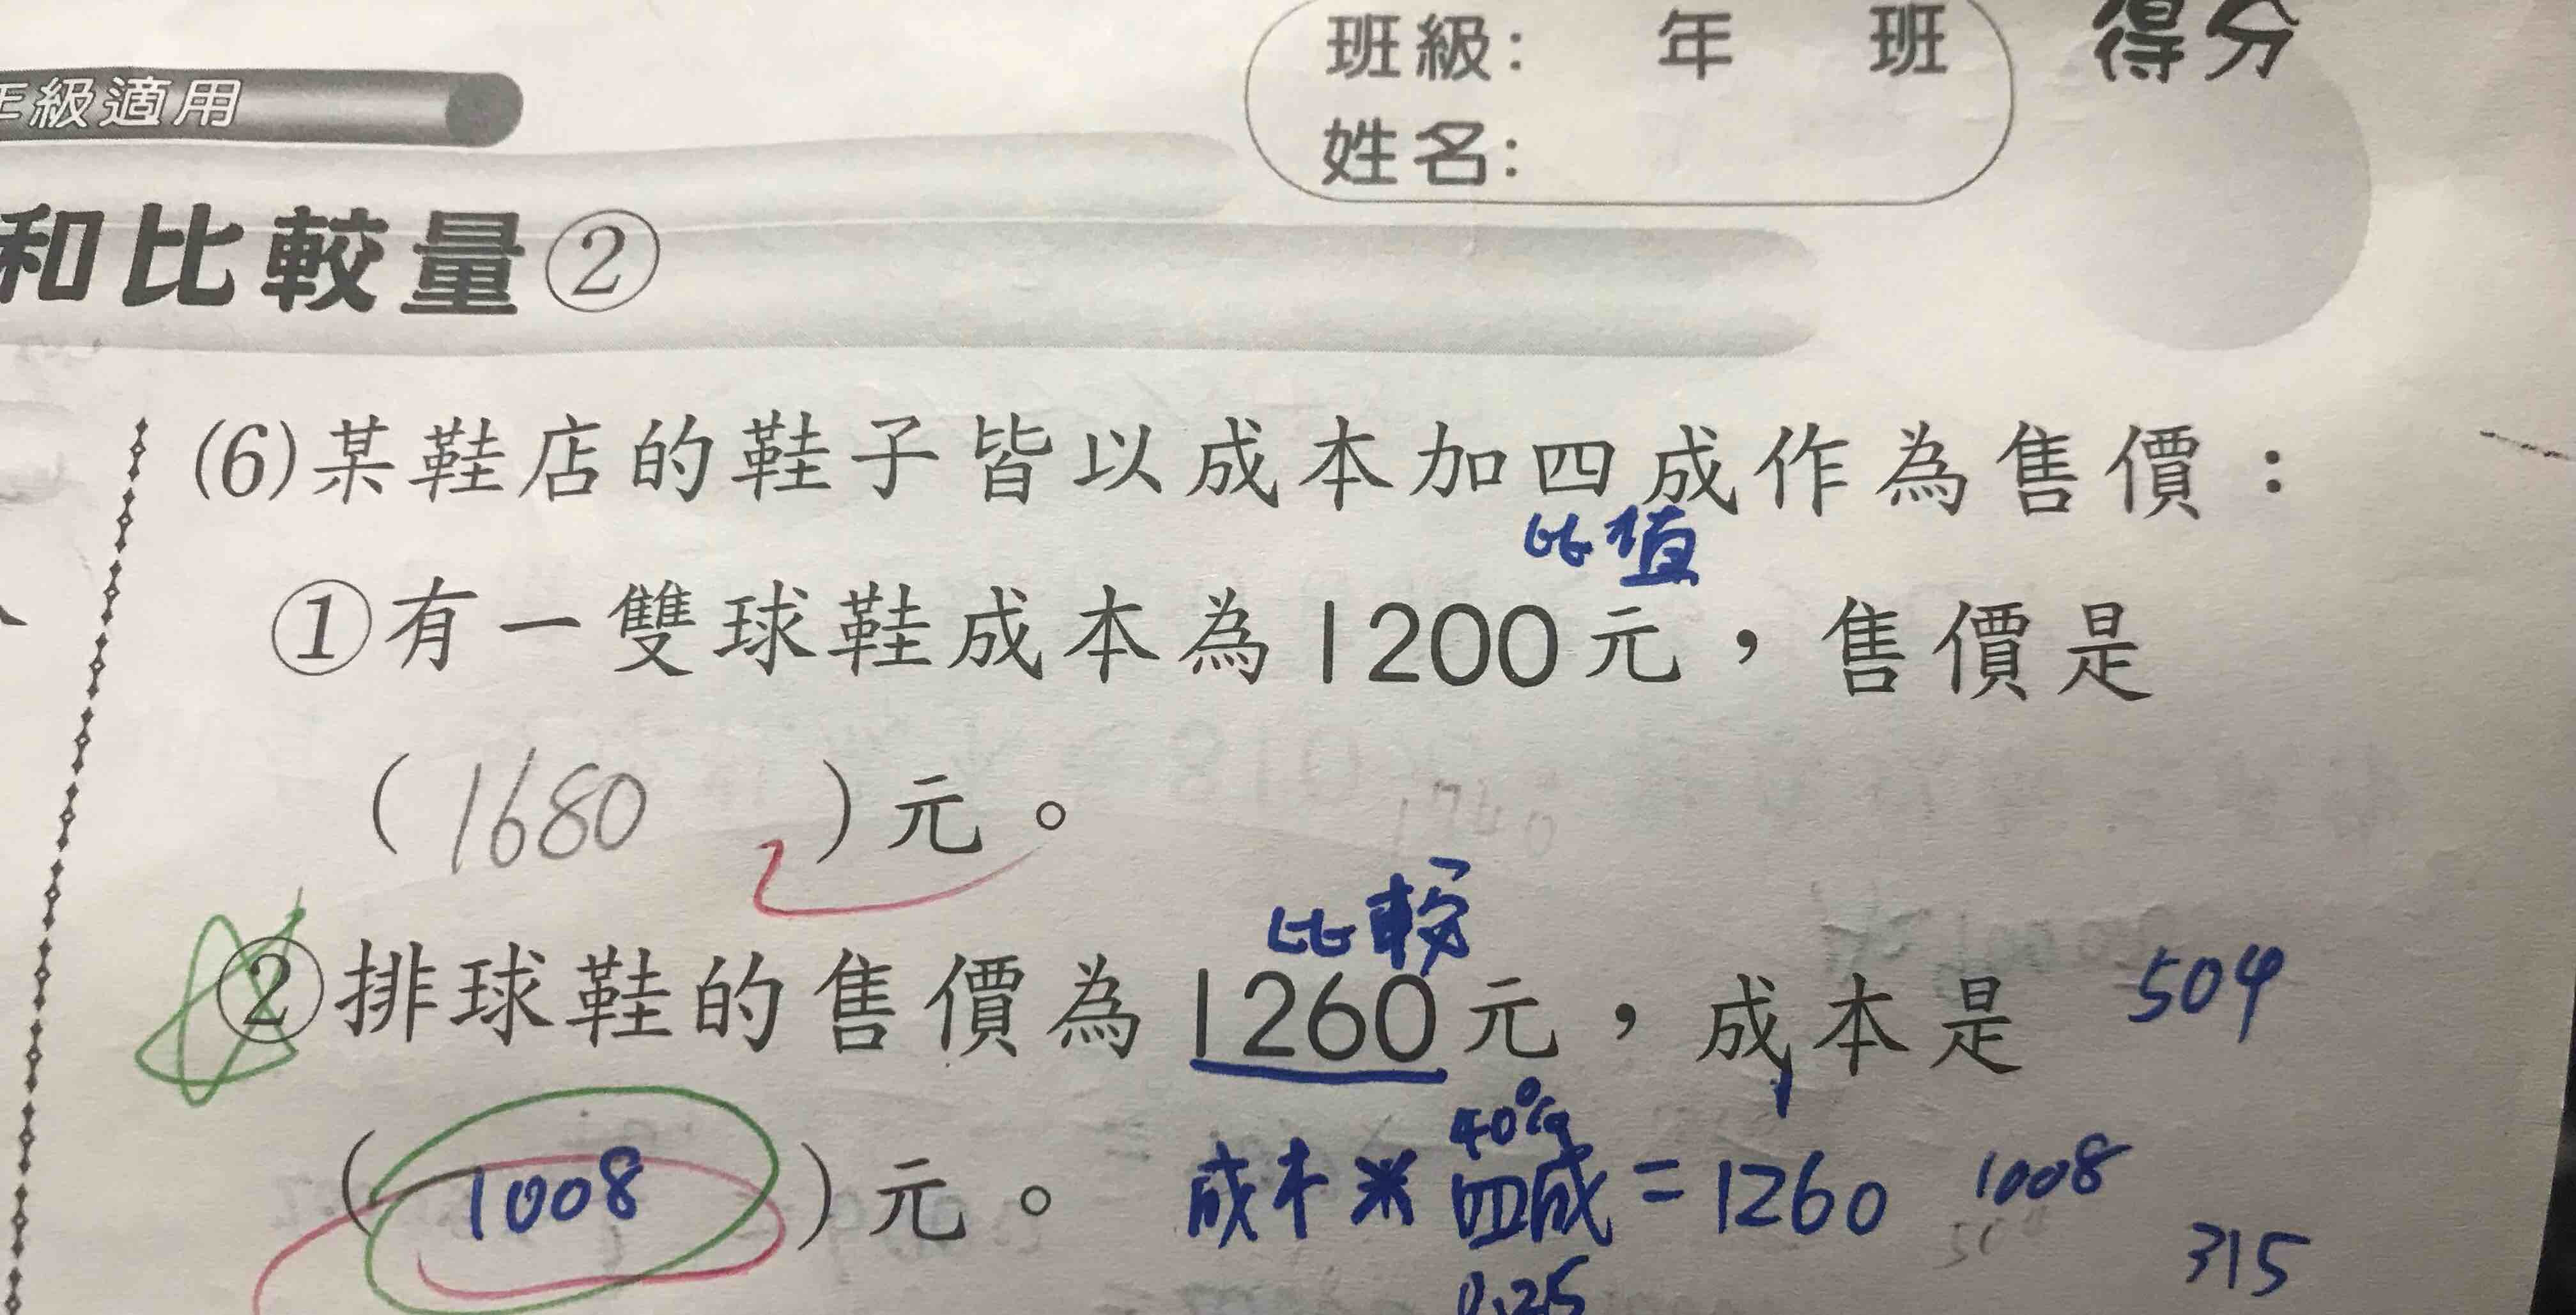 班級: 年 班 得分
年級適用
姓名:
和比較量②
(6)某鞋店的鞋子皆以成本加四成作為售價：
比值
①有一雙球鞋成本為1200元，售價是
(1680)元。
比較
②排球鞋的售價為1260元，成本是 504
40%
(1008)元。 成本×四成=1260 1008
315
0.25